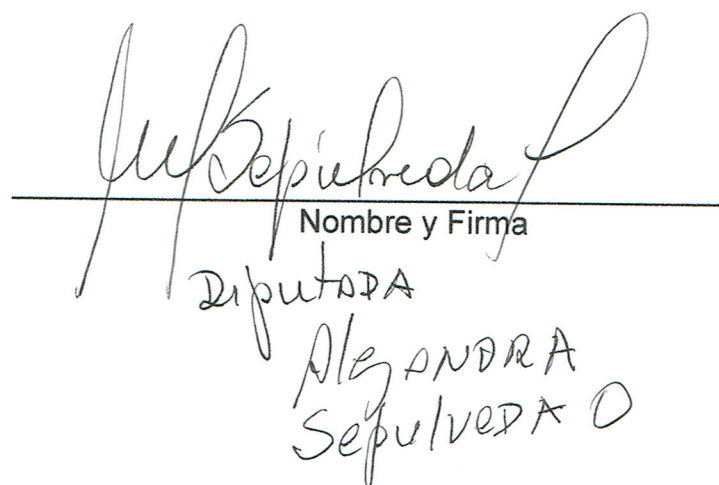 Sepúlveda
Nombre y Firma
DiputADA
AlejANDRA
SepúlveDA O